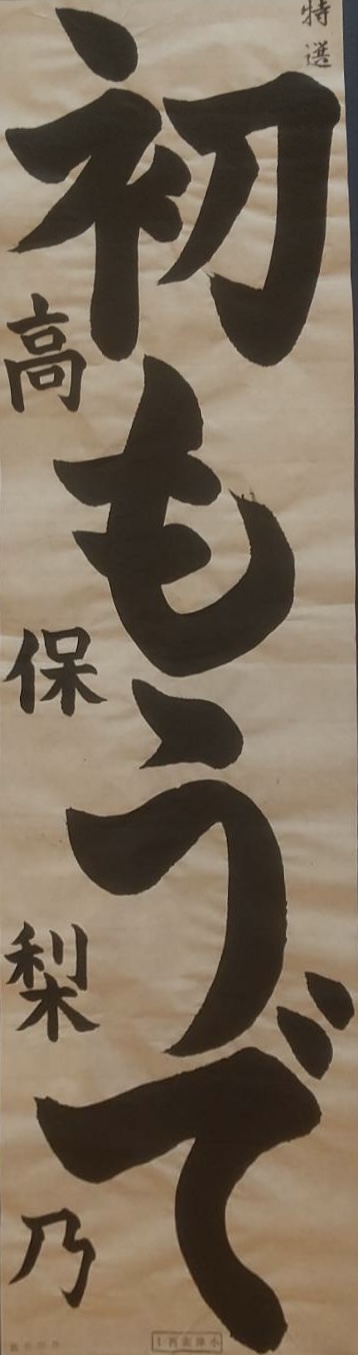 特選
初もうで
高保梨乃